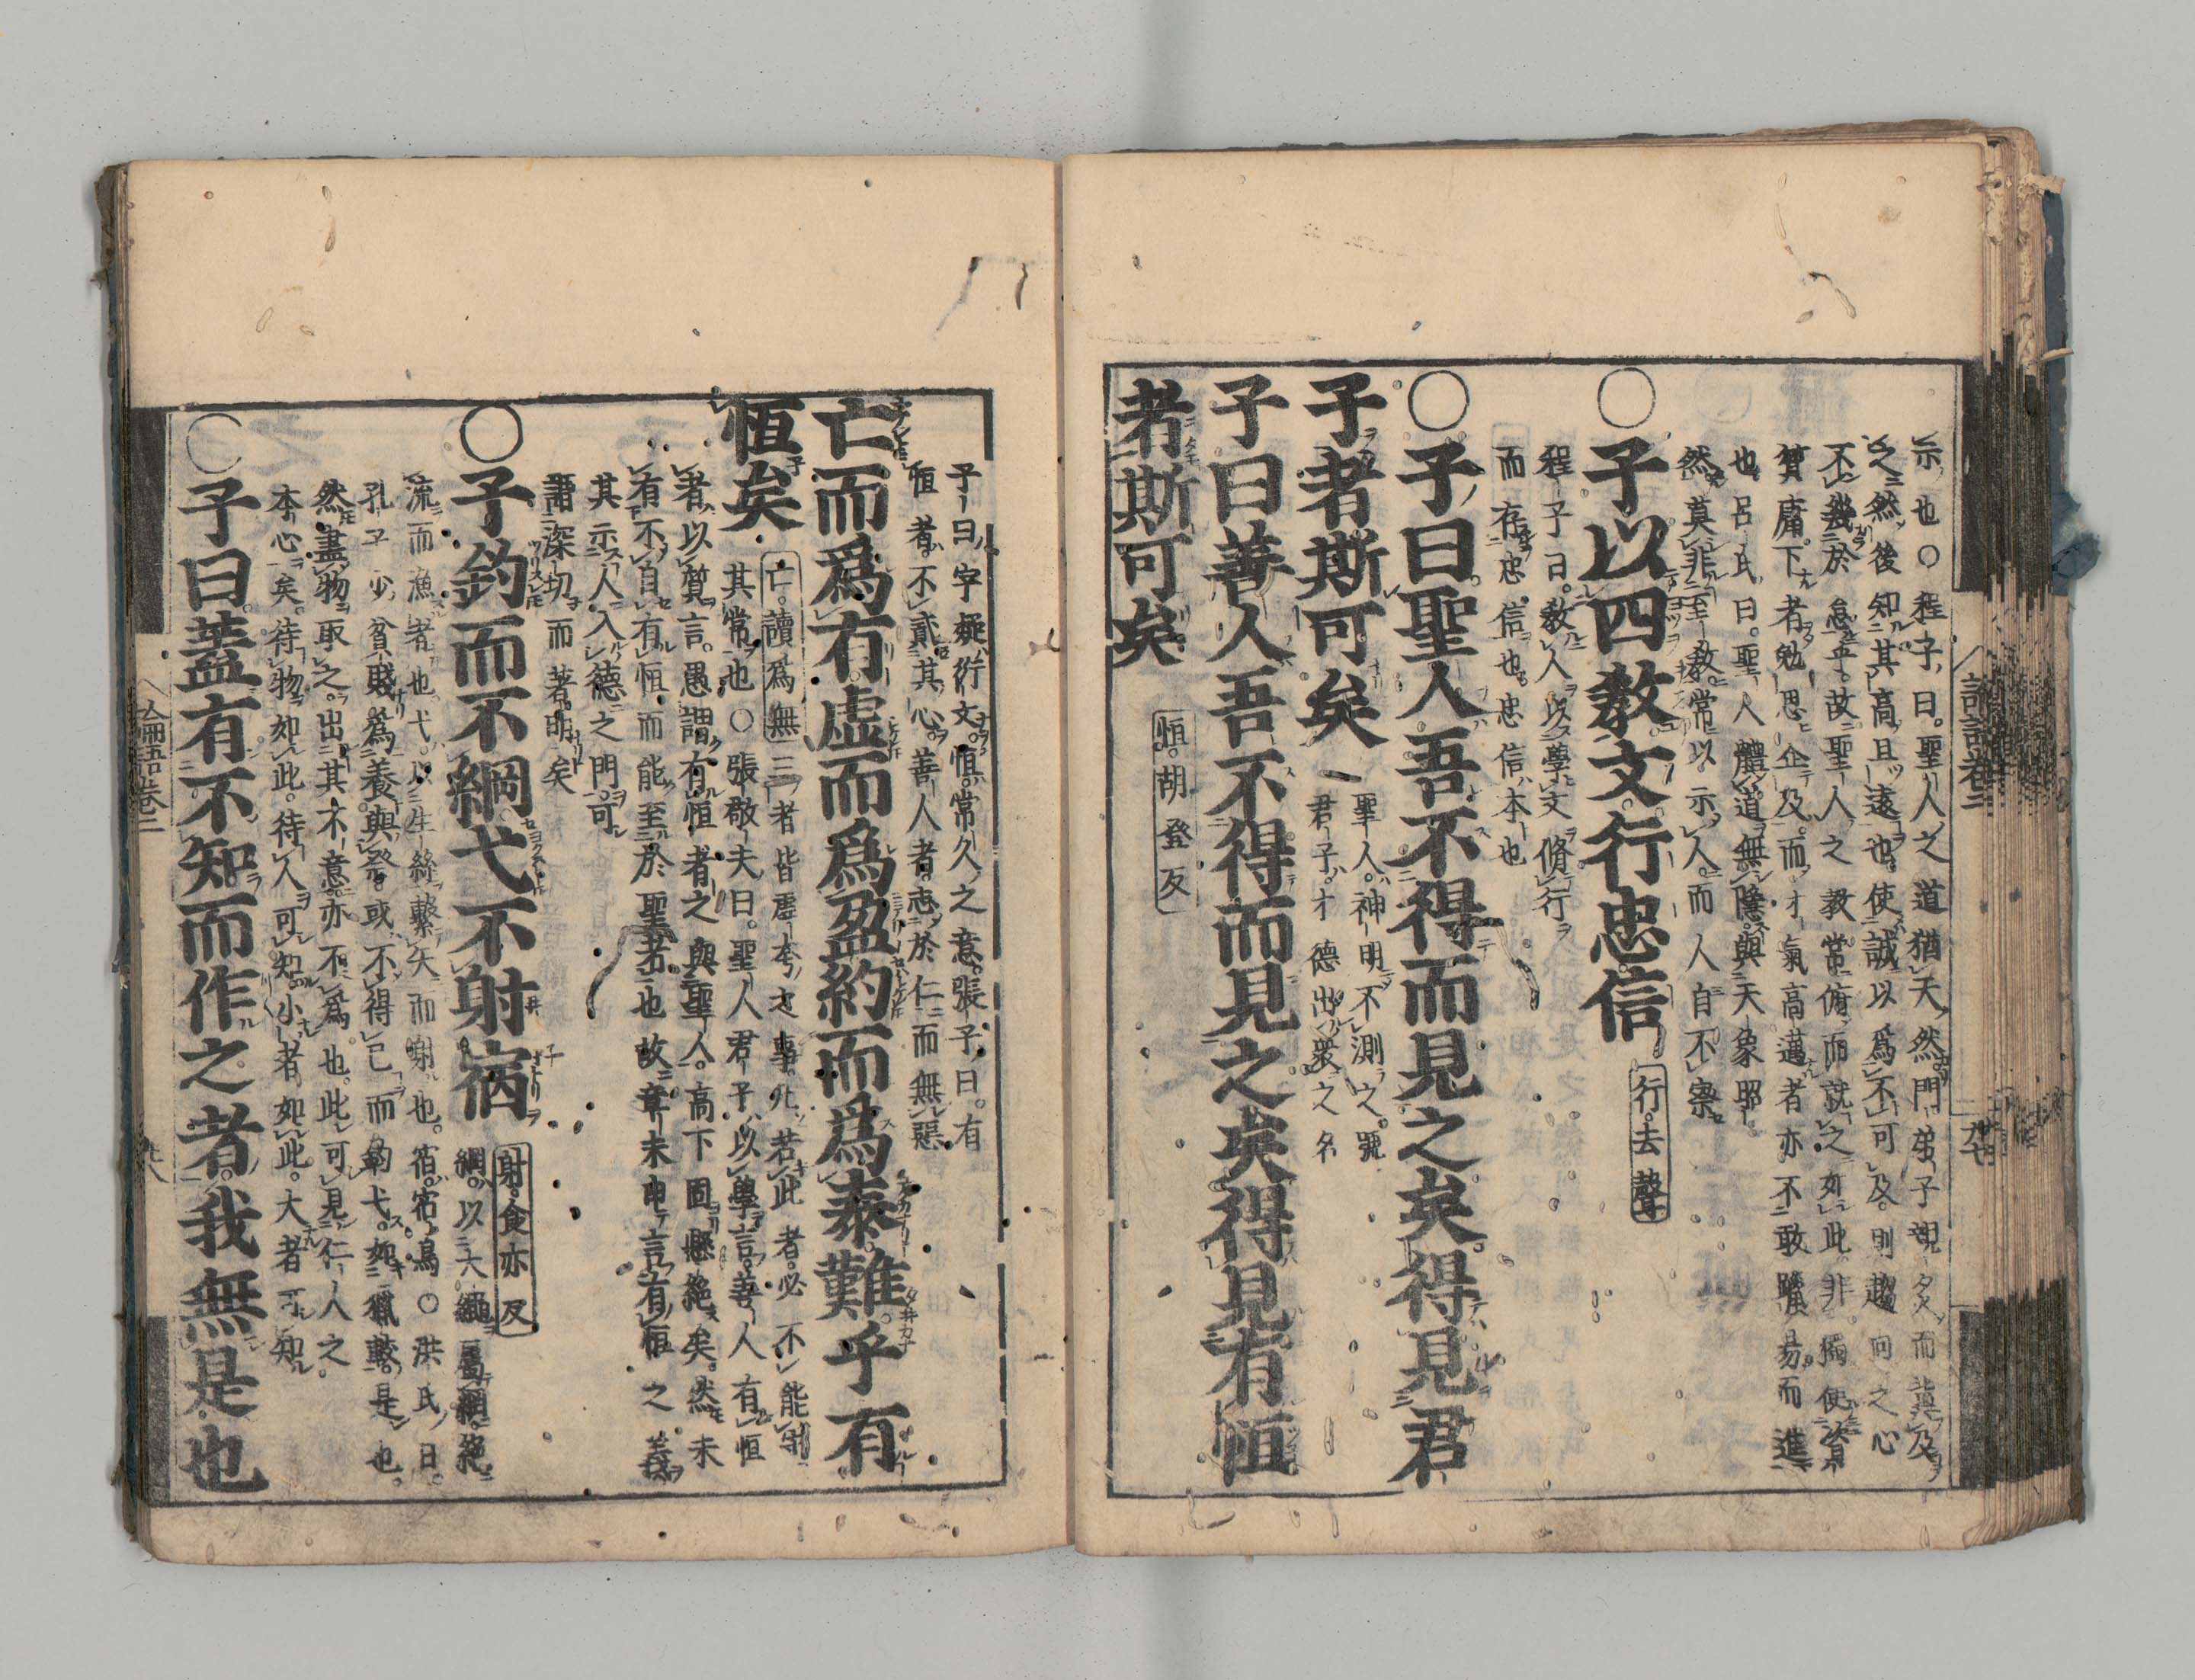 示也○程子曰聖人之道猶天然門弟子親炙而冀及
之然後知其高且遠也使誠以爲不可及則趨向之心
不幾於怠乎故聖人之教常俯而就之如此非獨使資
質庸下者勉思企及而才氣高邁者亦不敢躐易而進
也呂氏曰聖人體道無隱與天象昭
然莫非至教常以示人而人自不察
○子以四教文行忠信 行去聲
程子曰教人以學文脩行
而存忠信也忠信本也
○子曰聖人吾不得而見之矣得見君
子者斯可矣 聖人神明不測之號
君子才德出衆之名
子曰善人吾不得而見之矣得見有恒
者斯可矣 恒胡登反
論語卷二
子曰字疑衍文恒常久之意張子曰有
恒者不貳其心善人者志於仁而無惡
亡而爲有虛而爲盈約而爲泰難乎有
恒矣 亡讀爲無 三者皆虛夸之事凡若此者必不能守
其常也○張敬夫曰聖人君子以學言善人有恒
者以質言愚謂有恒者之與聖人高下固懸絶矣然未
有不自有恒而能至於聖者也故章末申言有恒之義
其示人入德之門可
謂深切而著明矣
○子釣而不綱弋不射宿 射食亦反
綱以大繩屬網絶
流而漁者也弋以生絲繫矢而射也宿宿鳥○洪氏曰
孔子少貧賤爲養與祭或不得已而釣弋如獵較是也
然盡物取之出其不意亦不爲也此可見仁人之
本心矣待物如此待人可知小者如此大者可知
○子曰蓋有不知而作之者我無是也
論語卷二